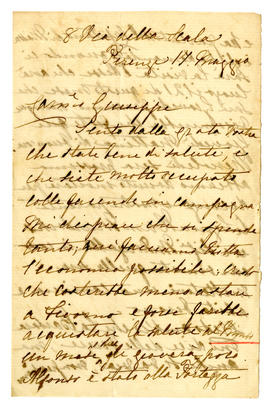 8 Via della Scala
Firenze 17 Maggio
Carmo Giuseppe
Sento dalla grata vostra
che state bene di salute, e
che siete molto occupato
colle faccende in campagna.
Mi dispiace che si spende
tanto; qui facciamo tutta
l'economia possibile;
che costerebbe meno a stare
a Livorno e forse farebbe
acquistare la salute al
un mese di
Alfonso è stato alla